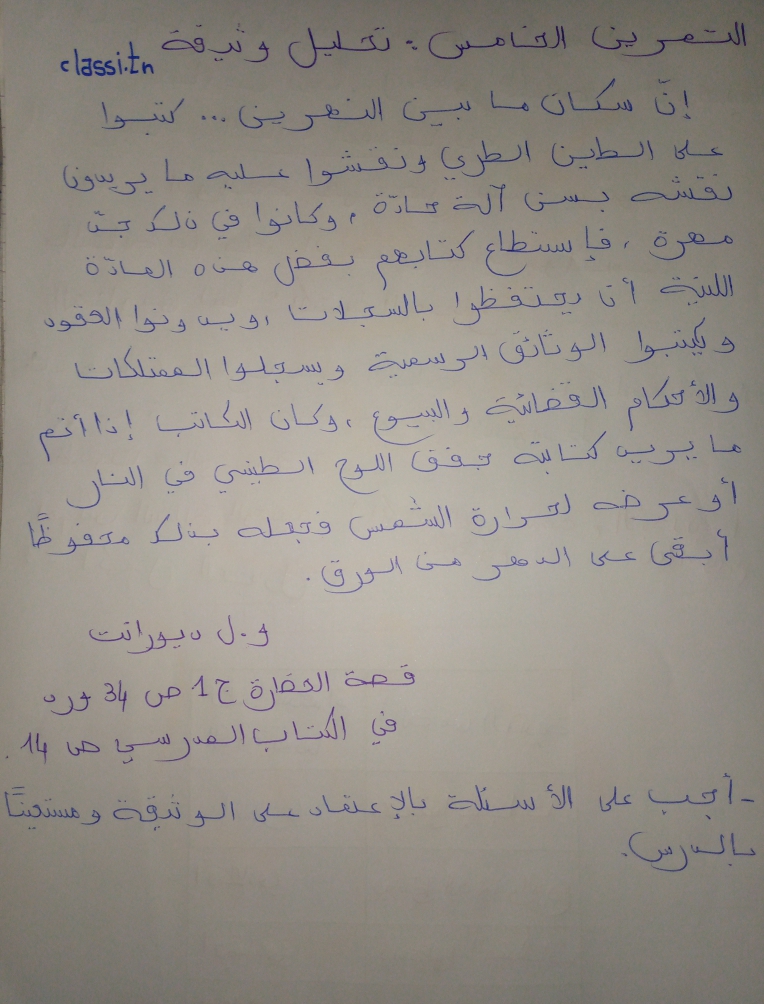 التمرين الخامس : تحليل وثيقة classi.tn
إنّ سكان ما بين النهرين ... كتبوا
على الطين الطري ونقشوا عليه ما يريدون
نقشه بسن آلة حادّة ، وكانوا في ذلك جدّ
مهرة ، فإستطاع كتابهم بفضل هذه المادّة
اللينة أن يحتفظوا بالسجلات ، ويدونوا العقود
ويكتبوا الوثائق الرسمية ويسجلوا الممتلكات
والأحكام القضائية والبيوع ، وكان الكاتب إذا أتم
ما يريد كتابته جفف اللوح الطيني في النار
أو عرضه لحرارة الشمس فجعله بذلك محفوظًا
أبقى على الدهر من الورق .
و . ل ديورانت
قصة الحضارة ج 1 ص 34 ورد
في الكتاب المدرسي ص 14 .
- أجب على الأسئلة بالإعتماد على الوثيقة ومستعينًا
بالدرس .